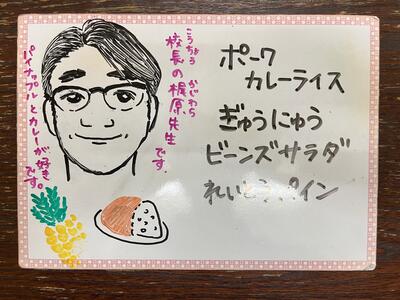 こうちょう かじわら
校長の梶原先生です.
パイナップルとカレーが好きです。
ポーク
カレーライス
ぎゅうにゅう
ビーンズサラダ
れいとうパイン